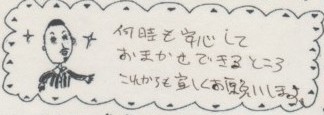 何時も安心して
おまかせできるところ
これからも宜しくお願いします。